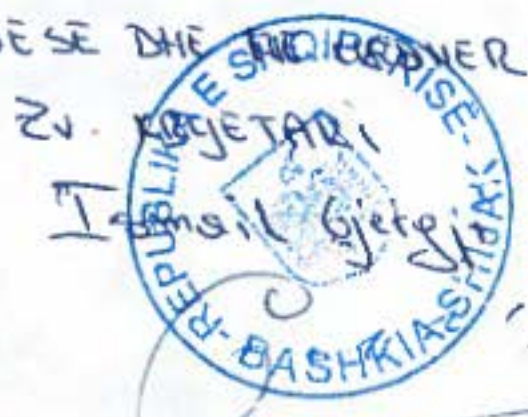 ESE DHE
Zv. KRYETARI
Ismail Gjergji
REPUBLIKA E SHQIPERISË - BASHKIA SHIJAK